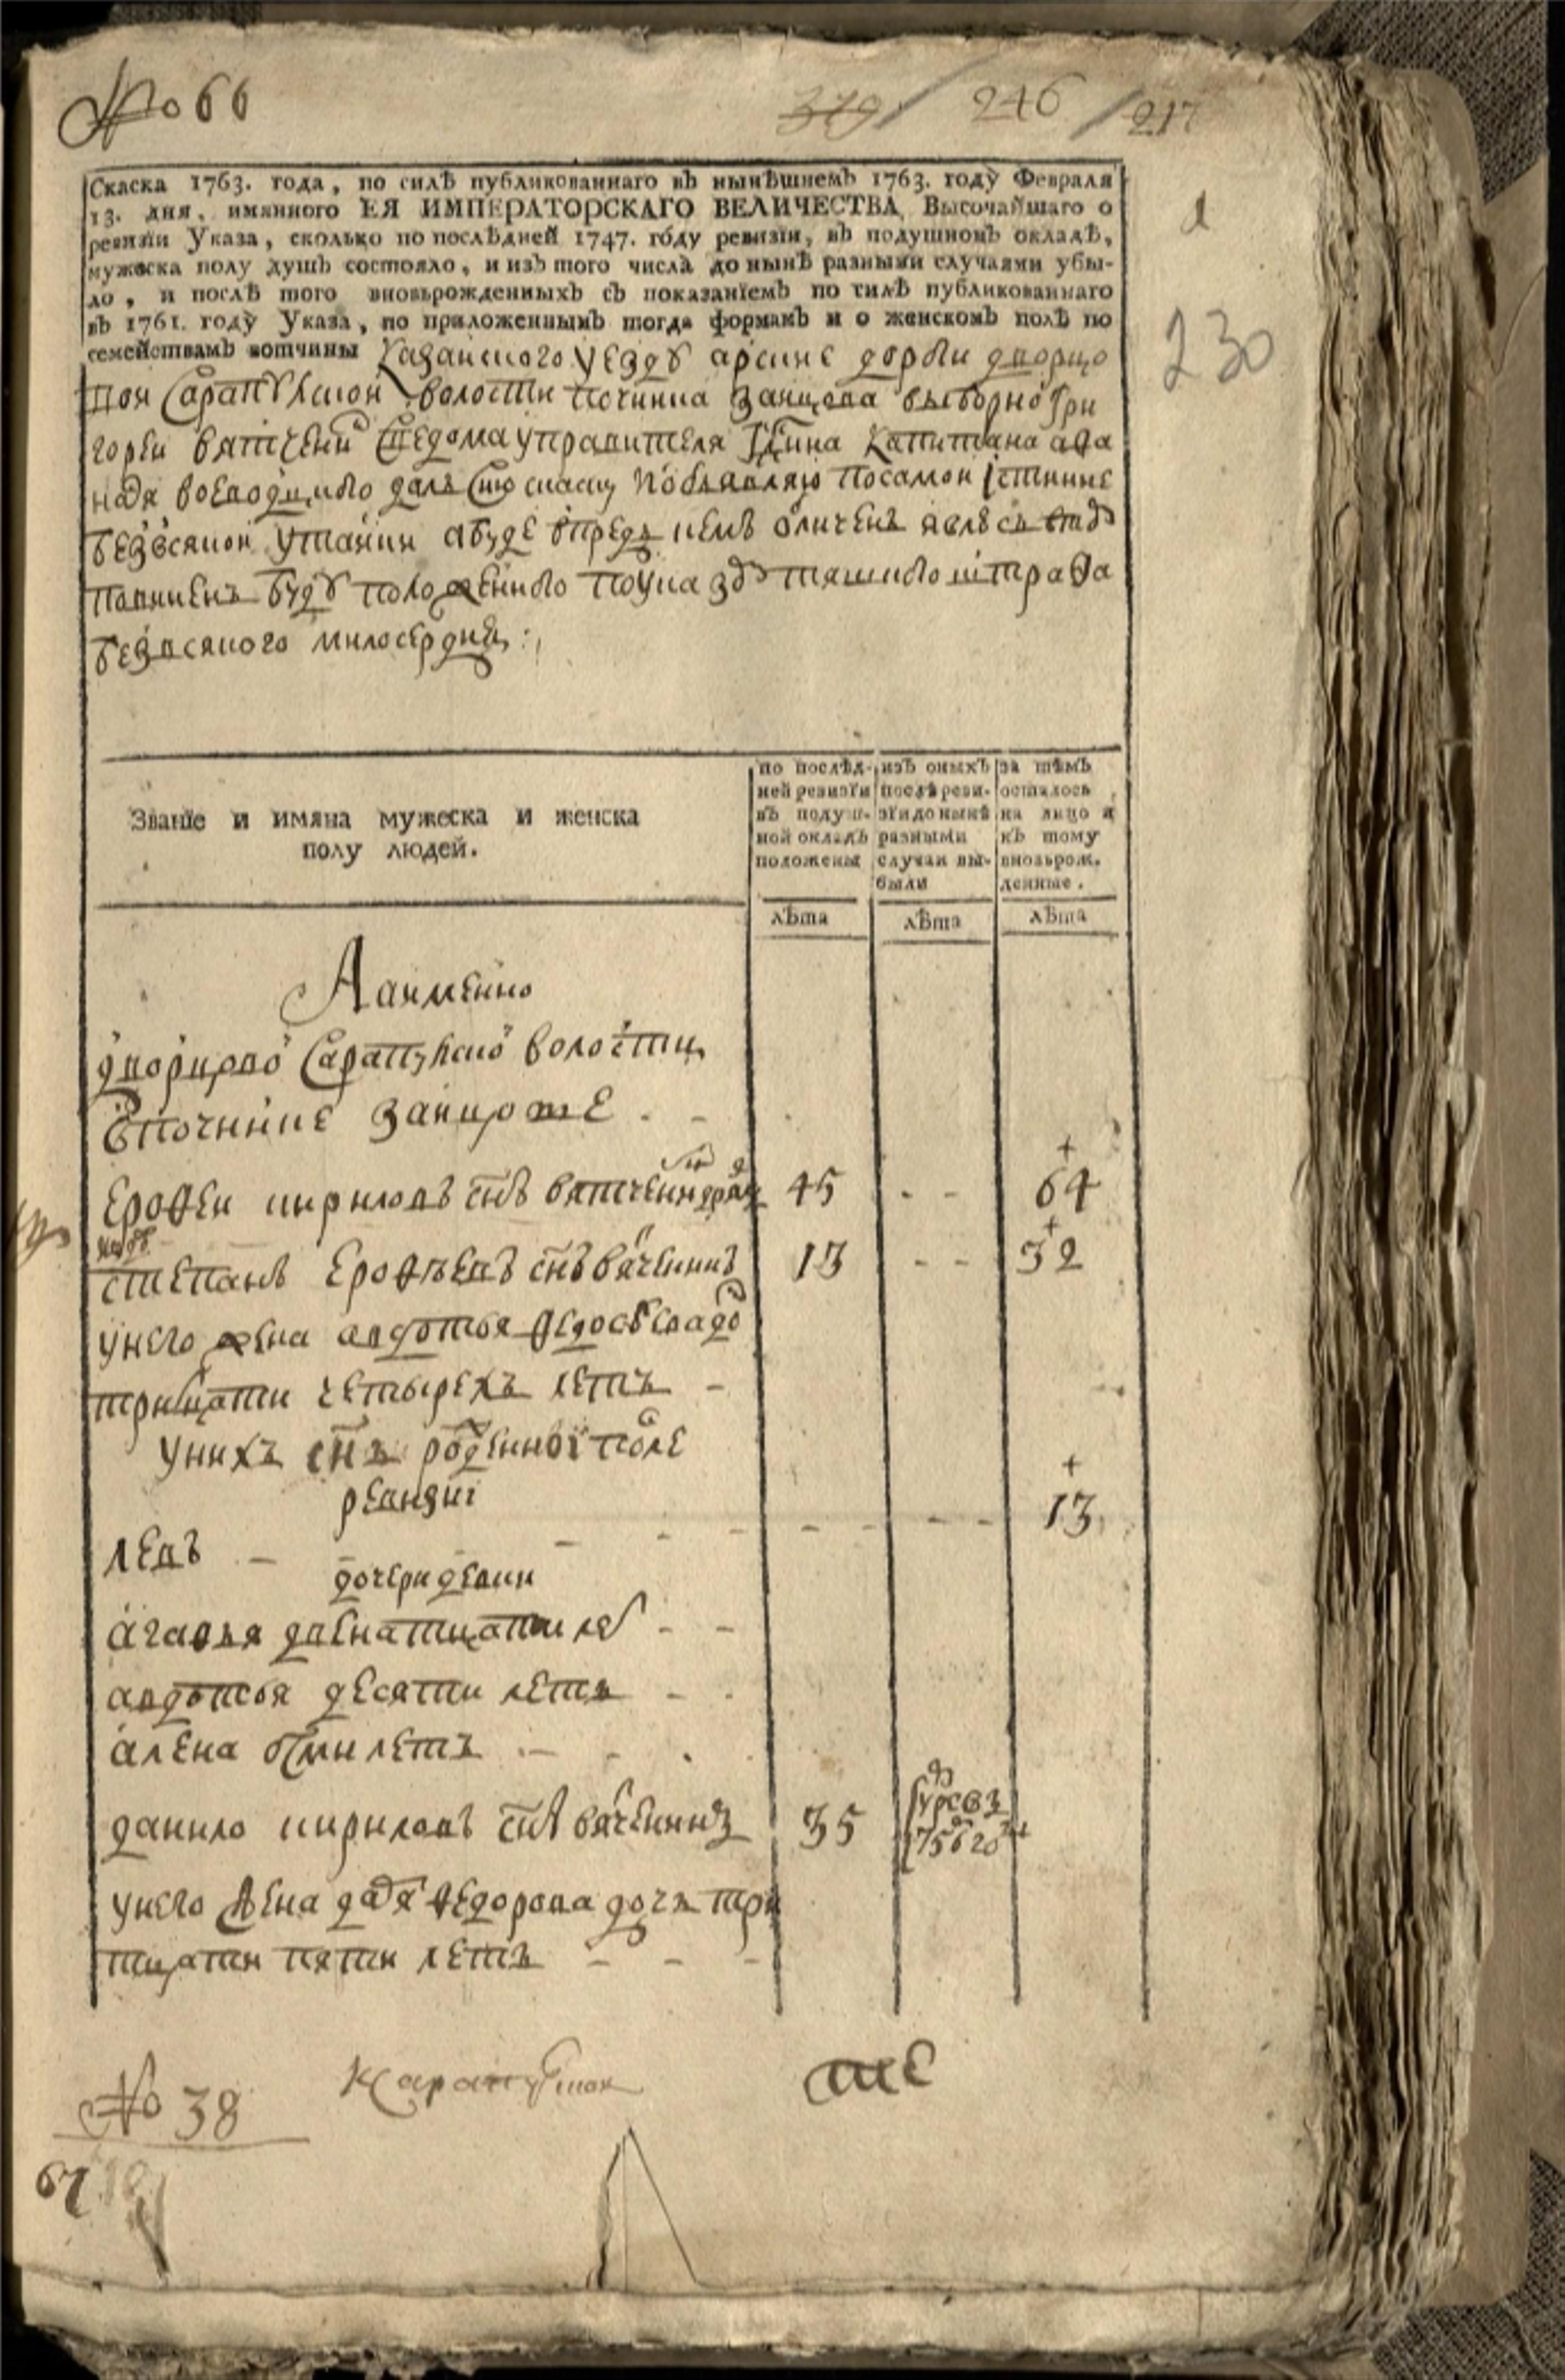 № 66
379 / 246 / 217
Скаска 1763. года, по силѣ публикованнаго въ нынѣшнемъ 1763. году Февраля
13. дня, имянного ЕЯ ИМПЕРАТОРСКАГО ВЕЛИЧЕСТВА, Высочайшаго о
ревизïи Указа, сколько по послѣдней 1747. году ревизïи, въ подушномъ окладѣ,
мужеска полу душъ состояло, и изъ того числа до нынѣ разными случаями убы-
ло, и послѣ того вновьрожденныхъ съ показанïемъ по силѣ публикованнаго
въ 1761. году Указа, по приложеннымъ тогда формамъ и о женскомъ полѣ по
семействамъ вотчины Казанского уезду арские дороги дворцо
вои Сарапулскои волости починка заицова выборно гри
гореи вятчени сведома управителя капитана афа
нася воеводцкого далъ сию скаску и объявляю посамои істинне
безвсякои утаики абуде впредь кемъ обличенъ явлюсь
повиненъ буду положенного поука зу тяшкого штрафа
безвсякого милосердия :
230
Званïе и имяна мужеска и женска
полу людей.
по послѣд-
ней ревизïи
въ подуш-
ной окладъ
положены
изъ оныхъ
послѣ реви-
зïи до нынѣ
разными
случаи вы-
были
за тѣмъ
осталось
на лицо и
къ тому
вновьрож.
денные.
лѣта лѣта лѣта
Аимянно
дворцово Сарапулско волости
впочинке заицове - -
ерофеи кирилавъ снъ вятченин 45 - - 64
степанъ ерофѣевъ снъ вяченинъ 13 - - 32
унего жена авдотья федосѣева до
тритцати четырехъ летъ -
унихъ снъ роденной после
ревизиі
левъ - - - - - - 13
дочери девки
агафья двенатцати ле - -
авдотья десяти летъ - -
алена осми летъ - - -
данило кирилавъ снъ вяченинъ 35 умре въ 756 го
унего жена дая федорова дочь три
тцати пяти летъ - - -
№ 38
67